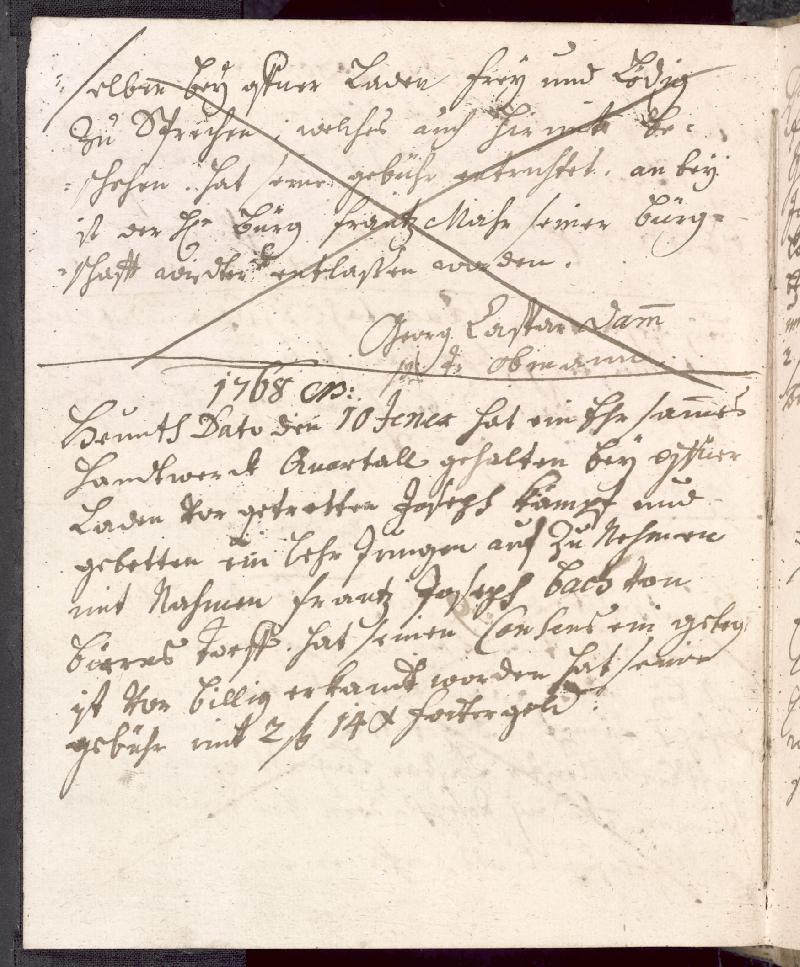 selben beÿ offner Laden freÿ und Lödig
Zu Sprechen, welches auch hirmit be=
=schehen. hat seine gebühr entrichtet. an beÿ
ist der H. bürg frantz Mahr seiner bürg=
=schafft wiedter entlassen worden.
Georg Caspar Damm
obmann
1768
Heunth Dato den 10 Jener hat ein Ehr sames
Handtwerck Quartall gehalten beÿ offner
Laden vor getretten Joseph kämpf und
gebetten ein Lehr Jungen auf Zu Nehmen
mit Nahmen frantz Joseph bach von
hat seinen Consens ein geleg
ist vor billig erkandt worden hat seine
gebühr mit 2 f 14 x